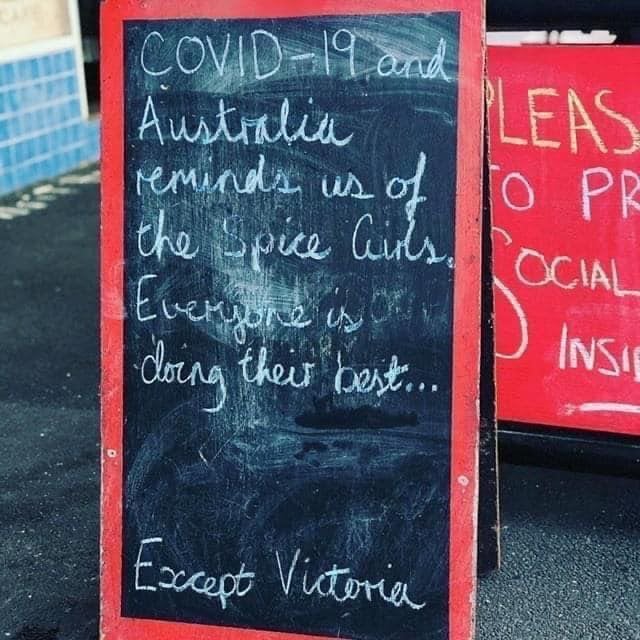 COVID-19 and
Australia
reminds us of
the Spice Girls.
Everyone is
doing their best...
Except Victoria
SOCIAL